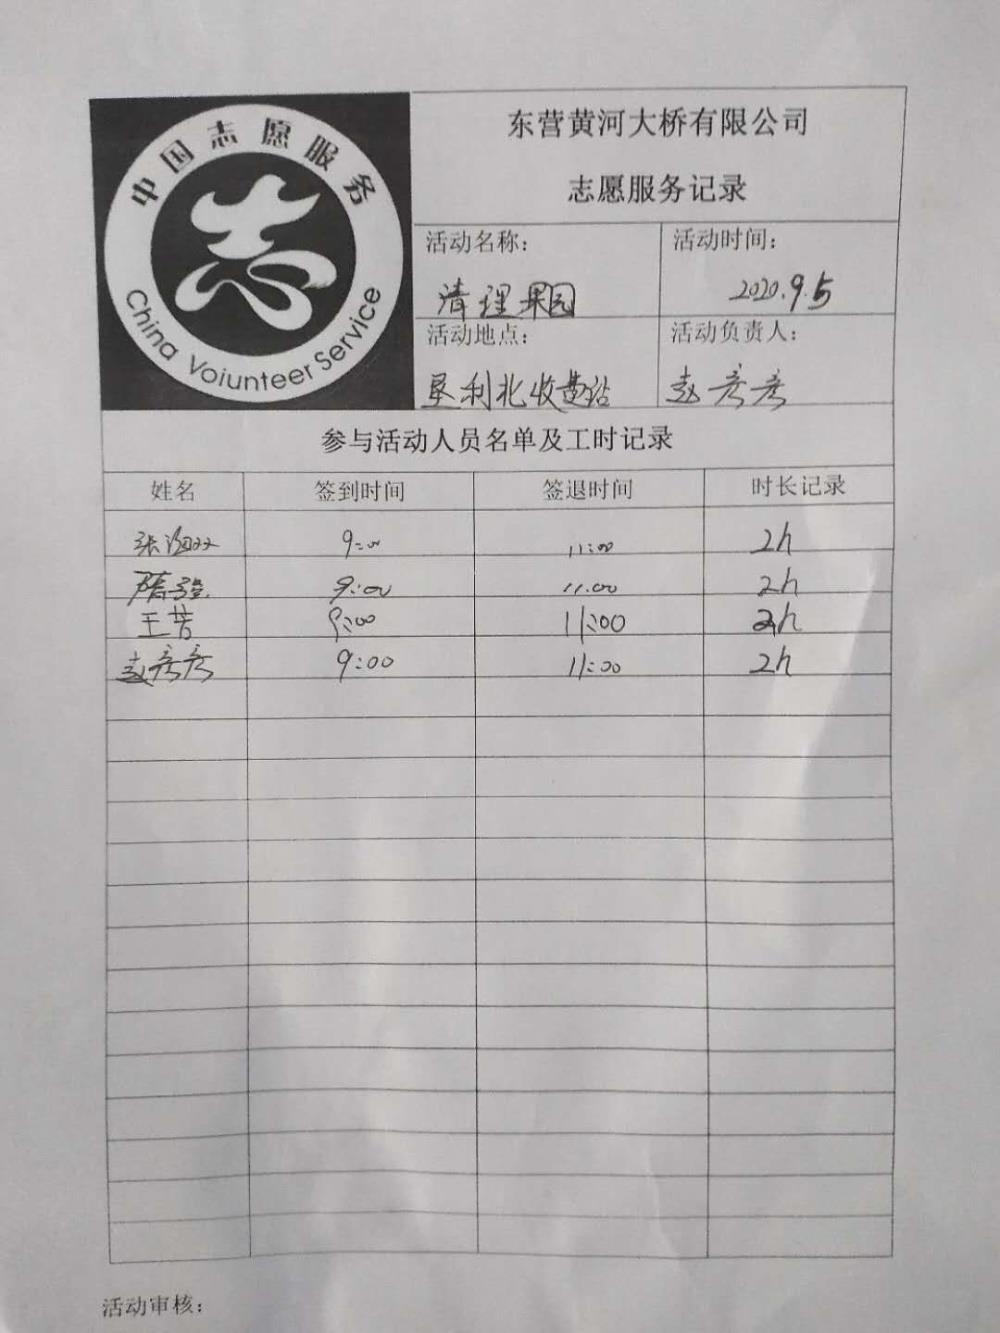 中国志愿服务
志
China Voiunteer Service
东营黄河大桥有限公司
志愿服务记录
活动名称: 活动时间:
清理果园 2020.9.5
活动地点: 活动负责人:
垦利北收费站 赵彦彦
参与活动人员名单及工时记录
姓名 签到时间 签退时间 时长记录
张 9:00 11:00 2h
隋 9:00 11:00 2h
王芳 9:00 11:00 2h
赵彦彦 9:00 11:00 2h
活动审核: